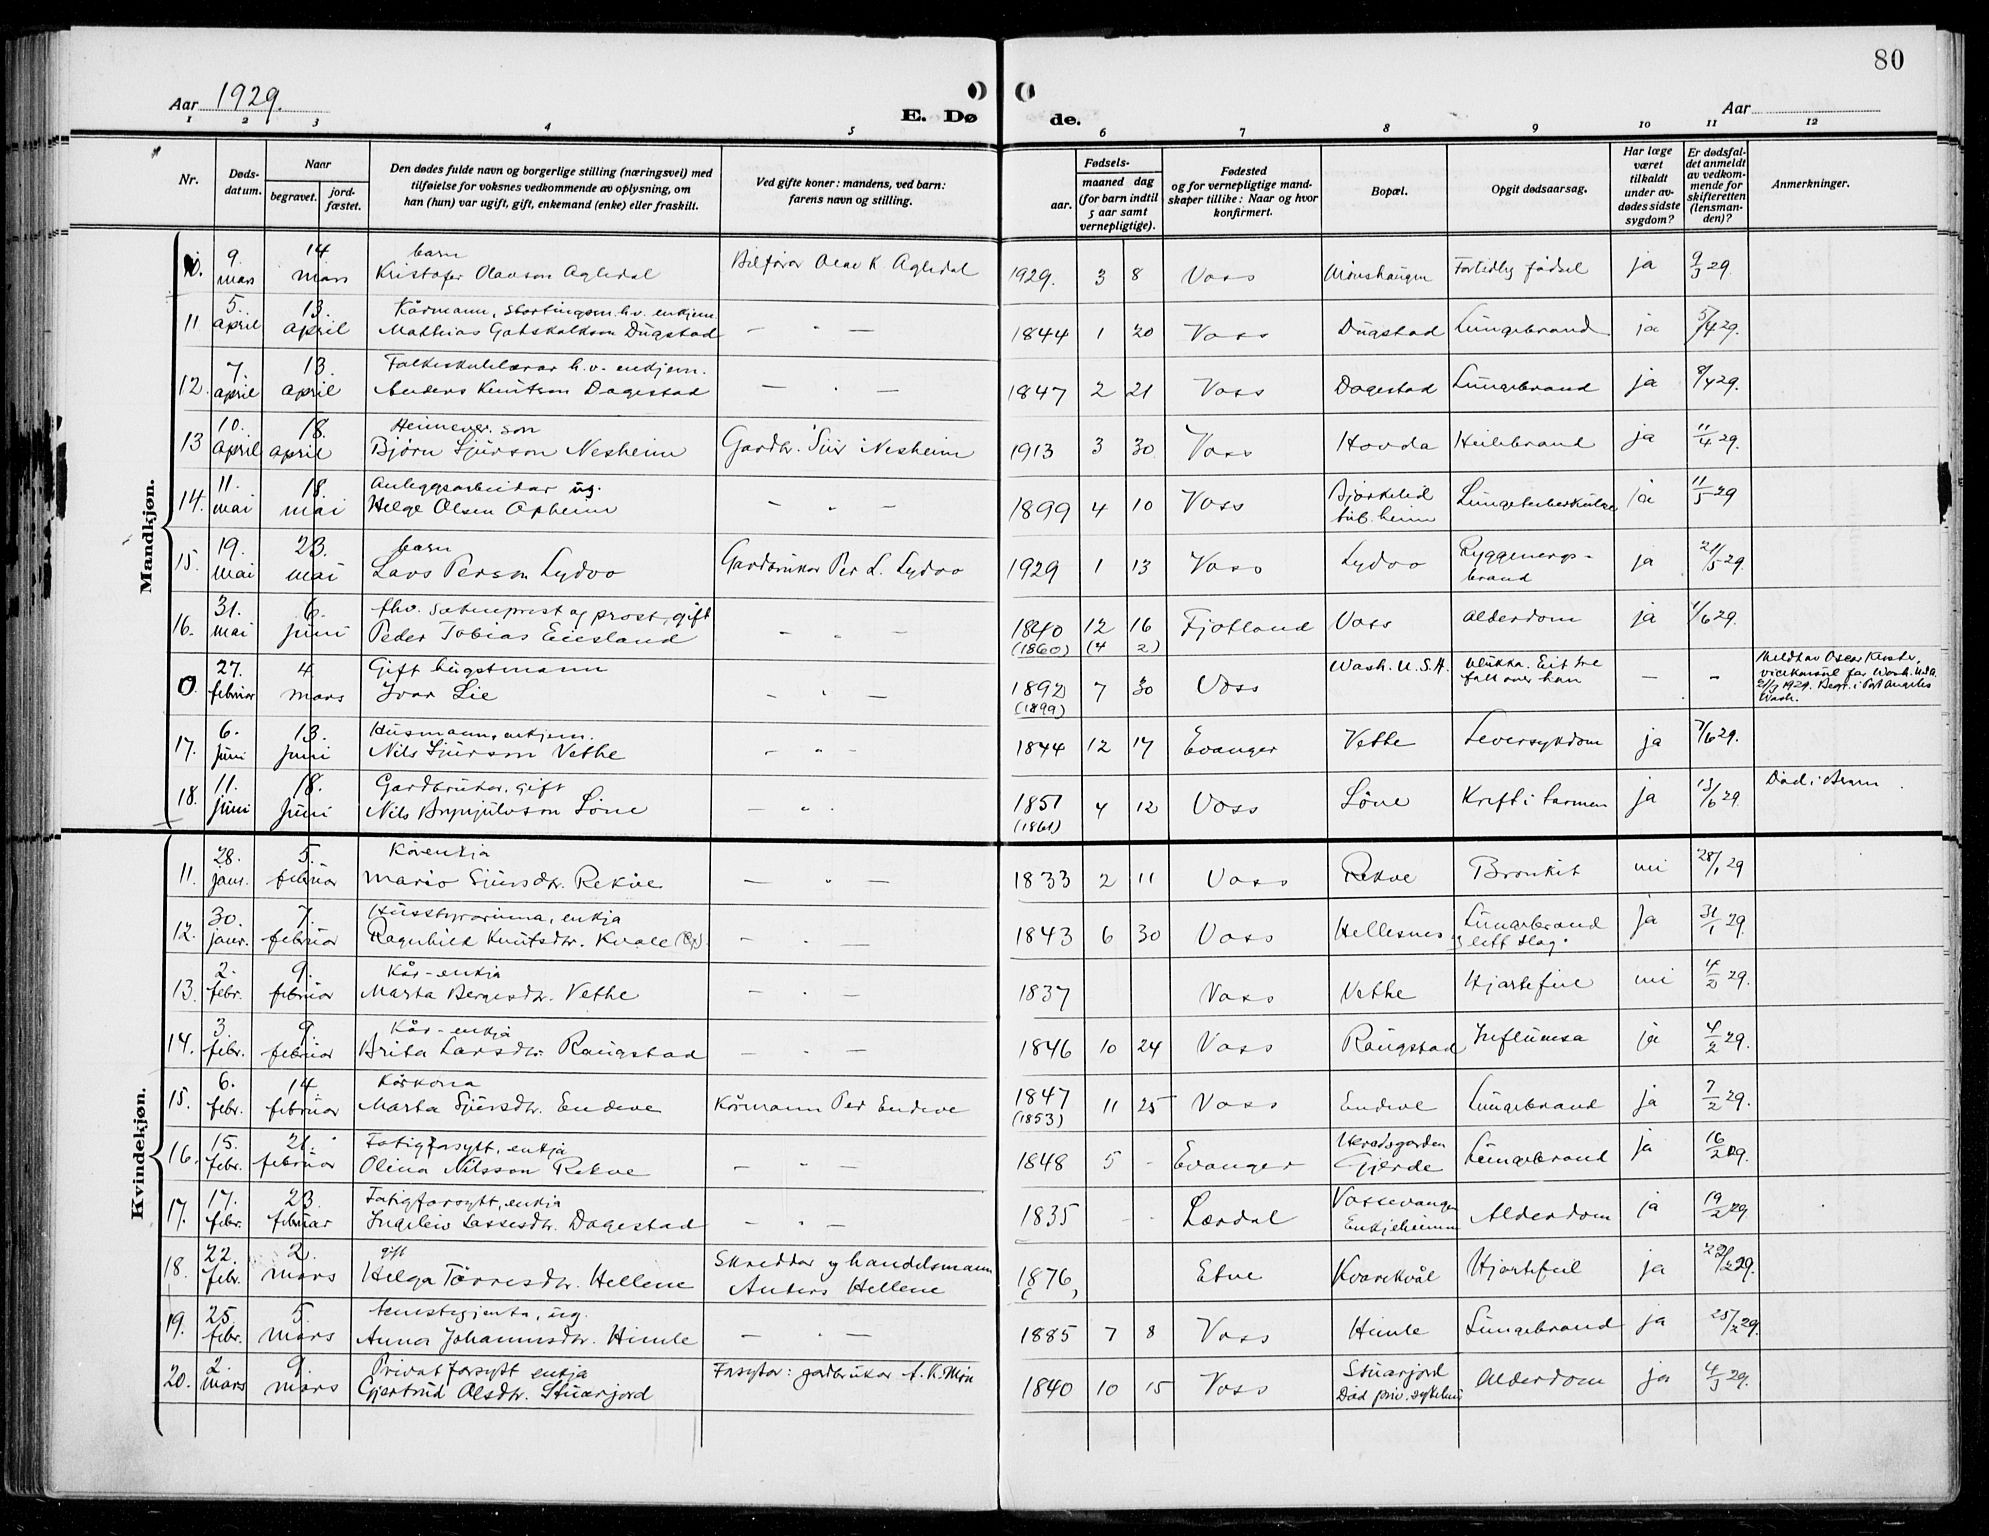 80
Aar 1929.
E. Døde.
Aar
1 2 3 4 5 6 7 8 9 10 11 12
Nr.
Døds-datum.
Naar
begravet.
jord-fæstet.
Den dødes fulde navn og borgerlige stilling (næringsvei) med tilføielse for voksnes vedkommende av oplysning, om han (hun) var ugift, gift, enkemand (enke) eller fraskilt.
Ved gifte koner: mandens, ved barn: farens navn og stilling.
Fødsels-
aar.
maaned dag
(for barn indtil 5 aar samt vernepligtige).
Fødested og for vernepligtige mandskaper tillike: Naar og hvor konfirmert.
Bopæl.
Opgit dødsaarsag.
Har læge været tilkaldt under avdødes sidste sygdom?
Er dødsfaldet anmeldt av vedkommende for skifteretten (lensmanden)?
Anmerkninger.
Mandkjøn.
10. 9. mars 14 mars barn Kristofer Olavson Agledal Bilførar Olav K. Agledal 1929. 3 8 Voss Mønshaugen Fortidleg fødsel ja 9/3 29.
11 5. april 13. april Kårmann, stortingsm. hv. enkjem. Mathias Gotskalkson Dugstad — " — 1844 1 20 Voss Dugstad Lungebrand ja 5/4 29.
12. 7. april 13. april Folkeskulelærar h.v. enkjem. Anders Knutson Dagestad — " — 1847 2 21 Voss Dagestad Lungebrand ja 8/4 29.
13 10. april 18. april Heimever. son Bjørn Sjurson Nesheim Gardbr. Sjur Nesheim 1913 3 30 Voss Hovda Heilebrand ja 11/4 29.
14. 11. mai 18. mai Anleggsarbeidar ug. Helge Olsen Opheim — " — 1899 4 10 Voss Bjørkelid tub. heim Lungetuberkulose ja 11/5 29
15. 19. mai 23. mai barn Lars Person Lydvo Gardbrukar Per L. Lydvo 1929 1 13 Voss Lydvo Ryggmergsbrand ja 21/5 29.
16. 31. mai 6. juni fhv. sokneprest og prost, gift Peder Tobias Eiesland — " — 1840 (1860) 12 (4 16 2) Fjotland Voss Alderdom ja 1/6 29.
0 27. februar 4 mars Gift bugstmann Ivar Lie — " — 1892 (1899) 7 30 Voss Wash. U.S.A. Ulukka. Eit tre fall over han — — Meldt av Oscar Kloster, visekonsul for Wash. U.S.A. 21/3 1929. Begr. i Port Angeles Wash.
17. 6. juni 13. juni Husmann, enkjem. Nils Sjurson Vethe — " — 1844 12 17 Evanger Vethe Leversykdom ja 7/6 29.
18. 11. juni 18. juni Gardbrukar, gift Nils Brynjulvson Løne — " — 1851 (1861) 4 12 Voss Løne Kreft i tarmen ja 13/6 29. Død i Bergen
Kvindekjøn.
11. 28. janr. 5. februar Kårenkja Mario Sjursdtr. Rekve — " — 1833 2 11 Voss Rekve Bronkit nei 28/1 29
12. 30. janr. 7. februar Husstyrarinna, enkja Ragnhild Knutsdtr. Kvale — " — 1843 6 30 Voss Hellesnes Lungebrand og lett slag. ja 31/1 29
13. 2. febr. 9. februar Kår-enkja Marta Bergesdtr. Vethe — " — 1837 Voss Vethe Hjartefeil nei 4/2 29.
14. 3. febr. 9. februar Kår-enkja Brita Larsdtr. Raugstad — " — 1846 10 24 Voss Raugstad Influensa ja 4/2 29.
15. 6. febr. 14 februar Kårkona Marta Sjursdtr. Endeve Kårmann Per Endeve 1847 (1853) 11 25 Voss Endeve Lungebrand ja 7/2 29.
16. 15. febr. 21. februar Fatigforsytt, enkja Olina Nilsson Rekve — " — 1848 5 - Evanger Heradsgarden Gjerde Lungebrand ja 16/2 29.
17. 17. febr. 23 februar Fatigforsytt, enkja Ingeleiv Lassesdtr. Dagestad — " — 1835 - - Lærdal Vossevangen Enkjeheimen Alderdom ja 19/2 29
18. 22. febr. 2. mars gift Helga Torresdtr. Hellene Skreddar og handelsmann Anders Hellene 1876 Etne Kvarekvål Hjartefeil ja 22/2 29.
19. 25. febr. 5. mars tenestegjenta, ug. Anna Johannesdtr. Himle — " — 1885 7 8 Voss Himle Lungebrand ja 25/2 29.
20. 2. mars 9. mars Privat forsytt enkja Gjertrud Olsdtr. Stuarjord Forsytar: gardbrukar A. K. Møn 1840 10 15 Voss Stuarjord Død priv. sykehus Alderdom ja 4/3 29.